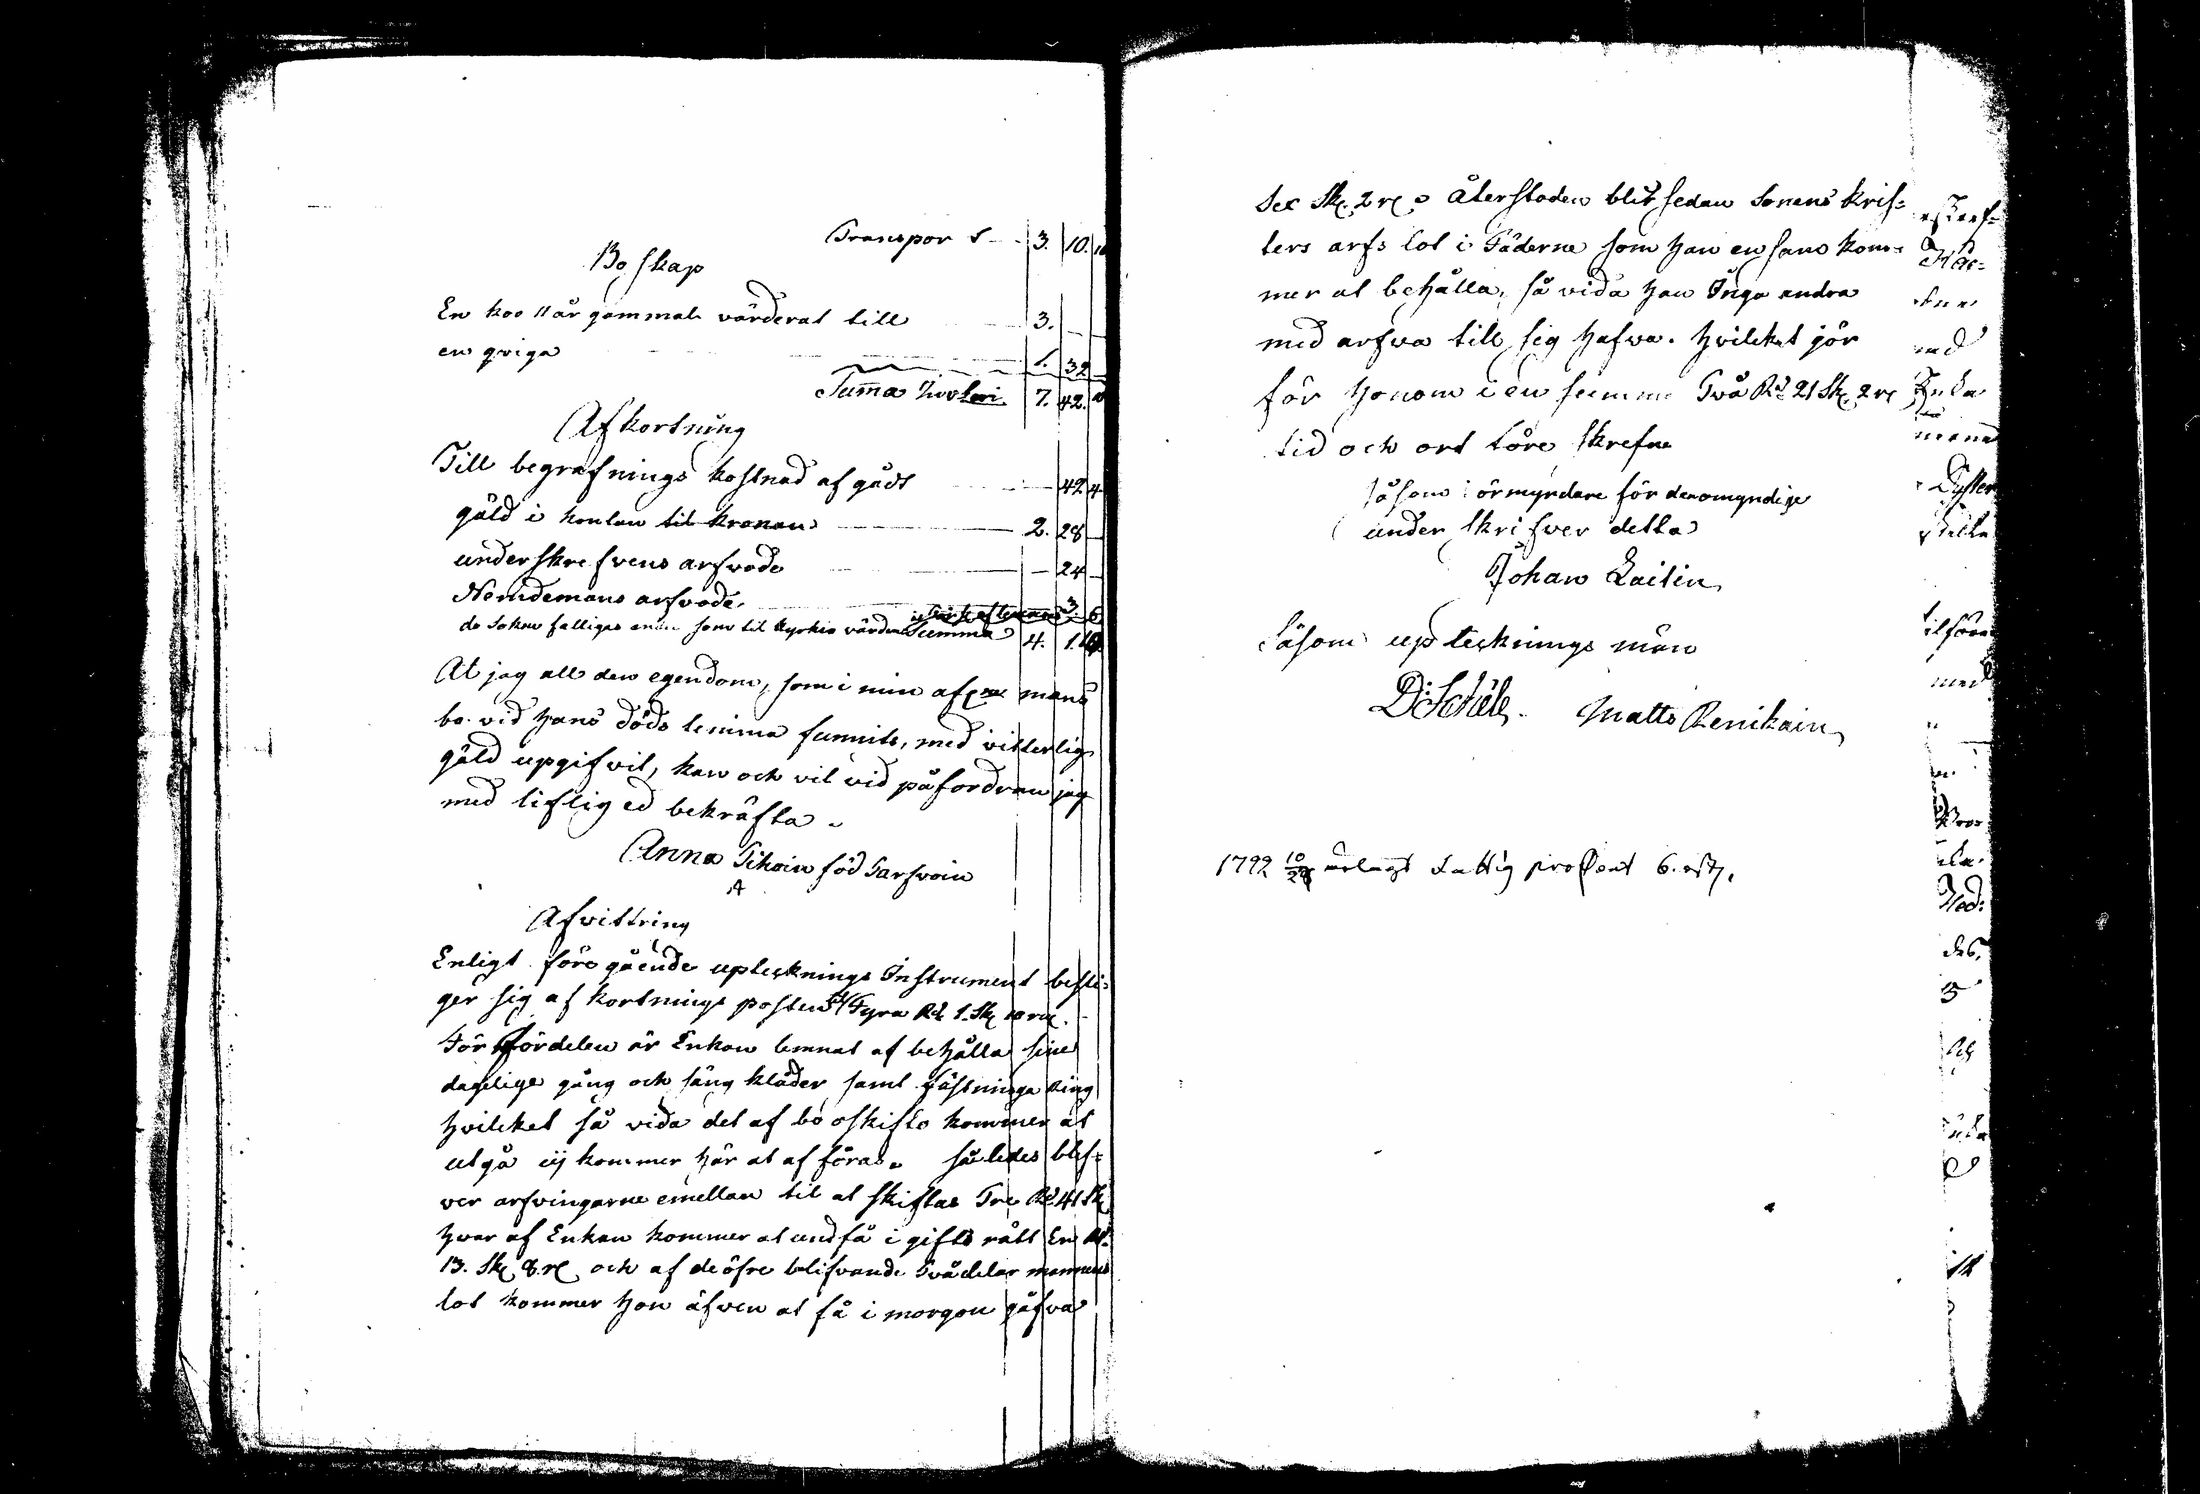 Transport 3. 10. 10
Boskap
En koo 11 år gammal värderat till 3.
en qviga 1. 32
Suma Invtari 7. 42. 10
Afkortning
Till begrafnings kostnad af gådt 42 4
gäld i kontan til kronan 2. 28
underskrefvens arfvode 24
Nemdemans arfvode 3. 6
de Sokne fattiges som til kyrkio värden Summa 4. 1. 10
At jag all den egendom, som i min afl. mans
bo vid hans döds temma funnits, med vitterlig
gäld upgifvit, kan och vil vid påfordran jag
med liflig ed bekräfta.
Anna Tihoin föd Tarfvoin
A
Afvittring
Enligt föregående upteknings Instrument besti=
ger sig afkortnings posten Fyra Rd 1. Sk 10 re.
För fördelen är Enkan lemnat af behålla sine
dagelige gång och säng kläder samt fästninga Ring
hvilcket så vida det af bo oskifto kommer at
utgå ej kommer här at afföras. således blif=
ver arfvingarne emellan til at skiftas Tre Rd 41 Sk
hvar af Enkan kommer at undfå i gifto rätt En Rd.
13. Sk 8. re och af de öfre blifvande Två delar mannens
lot kommer hon äfven at få i morgon gåfva
sex Sk. 2 re. Återstoden blir sedan Sonens Kris=
ters arfs lot i Fäderne som han ensam kom=
mer at behålla, så vida han Inga andra
med arfva till sig hafva. hvilcket gör
för honom i en summa Två Rd 21 Sk. 2 re
tid och ort före skrefne
såsom förmyndare för den omyndige
under skrifver detta
Johan Laitin
Såsom uptecknings män
D: Schäle. Matts Renikain
1792 10/28 erlagt fattig procent 6.